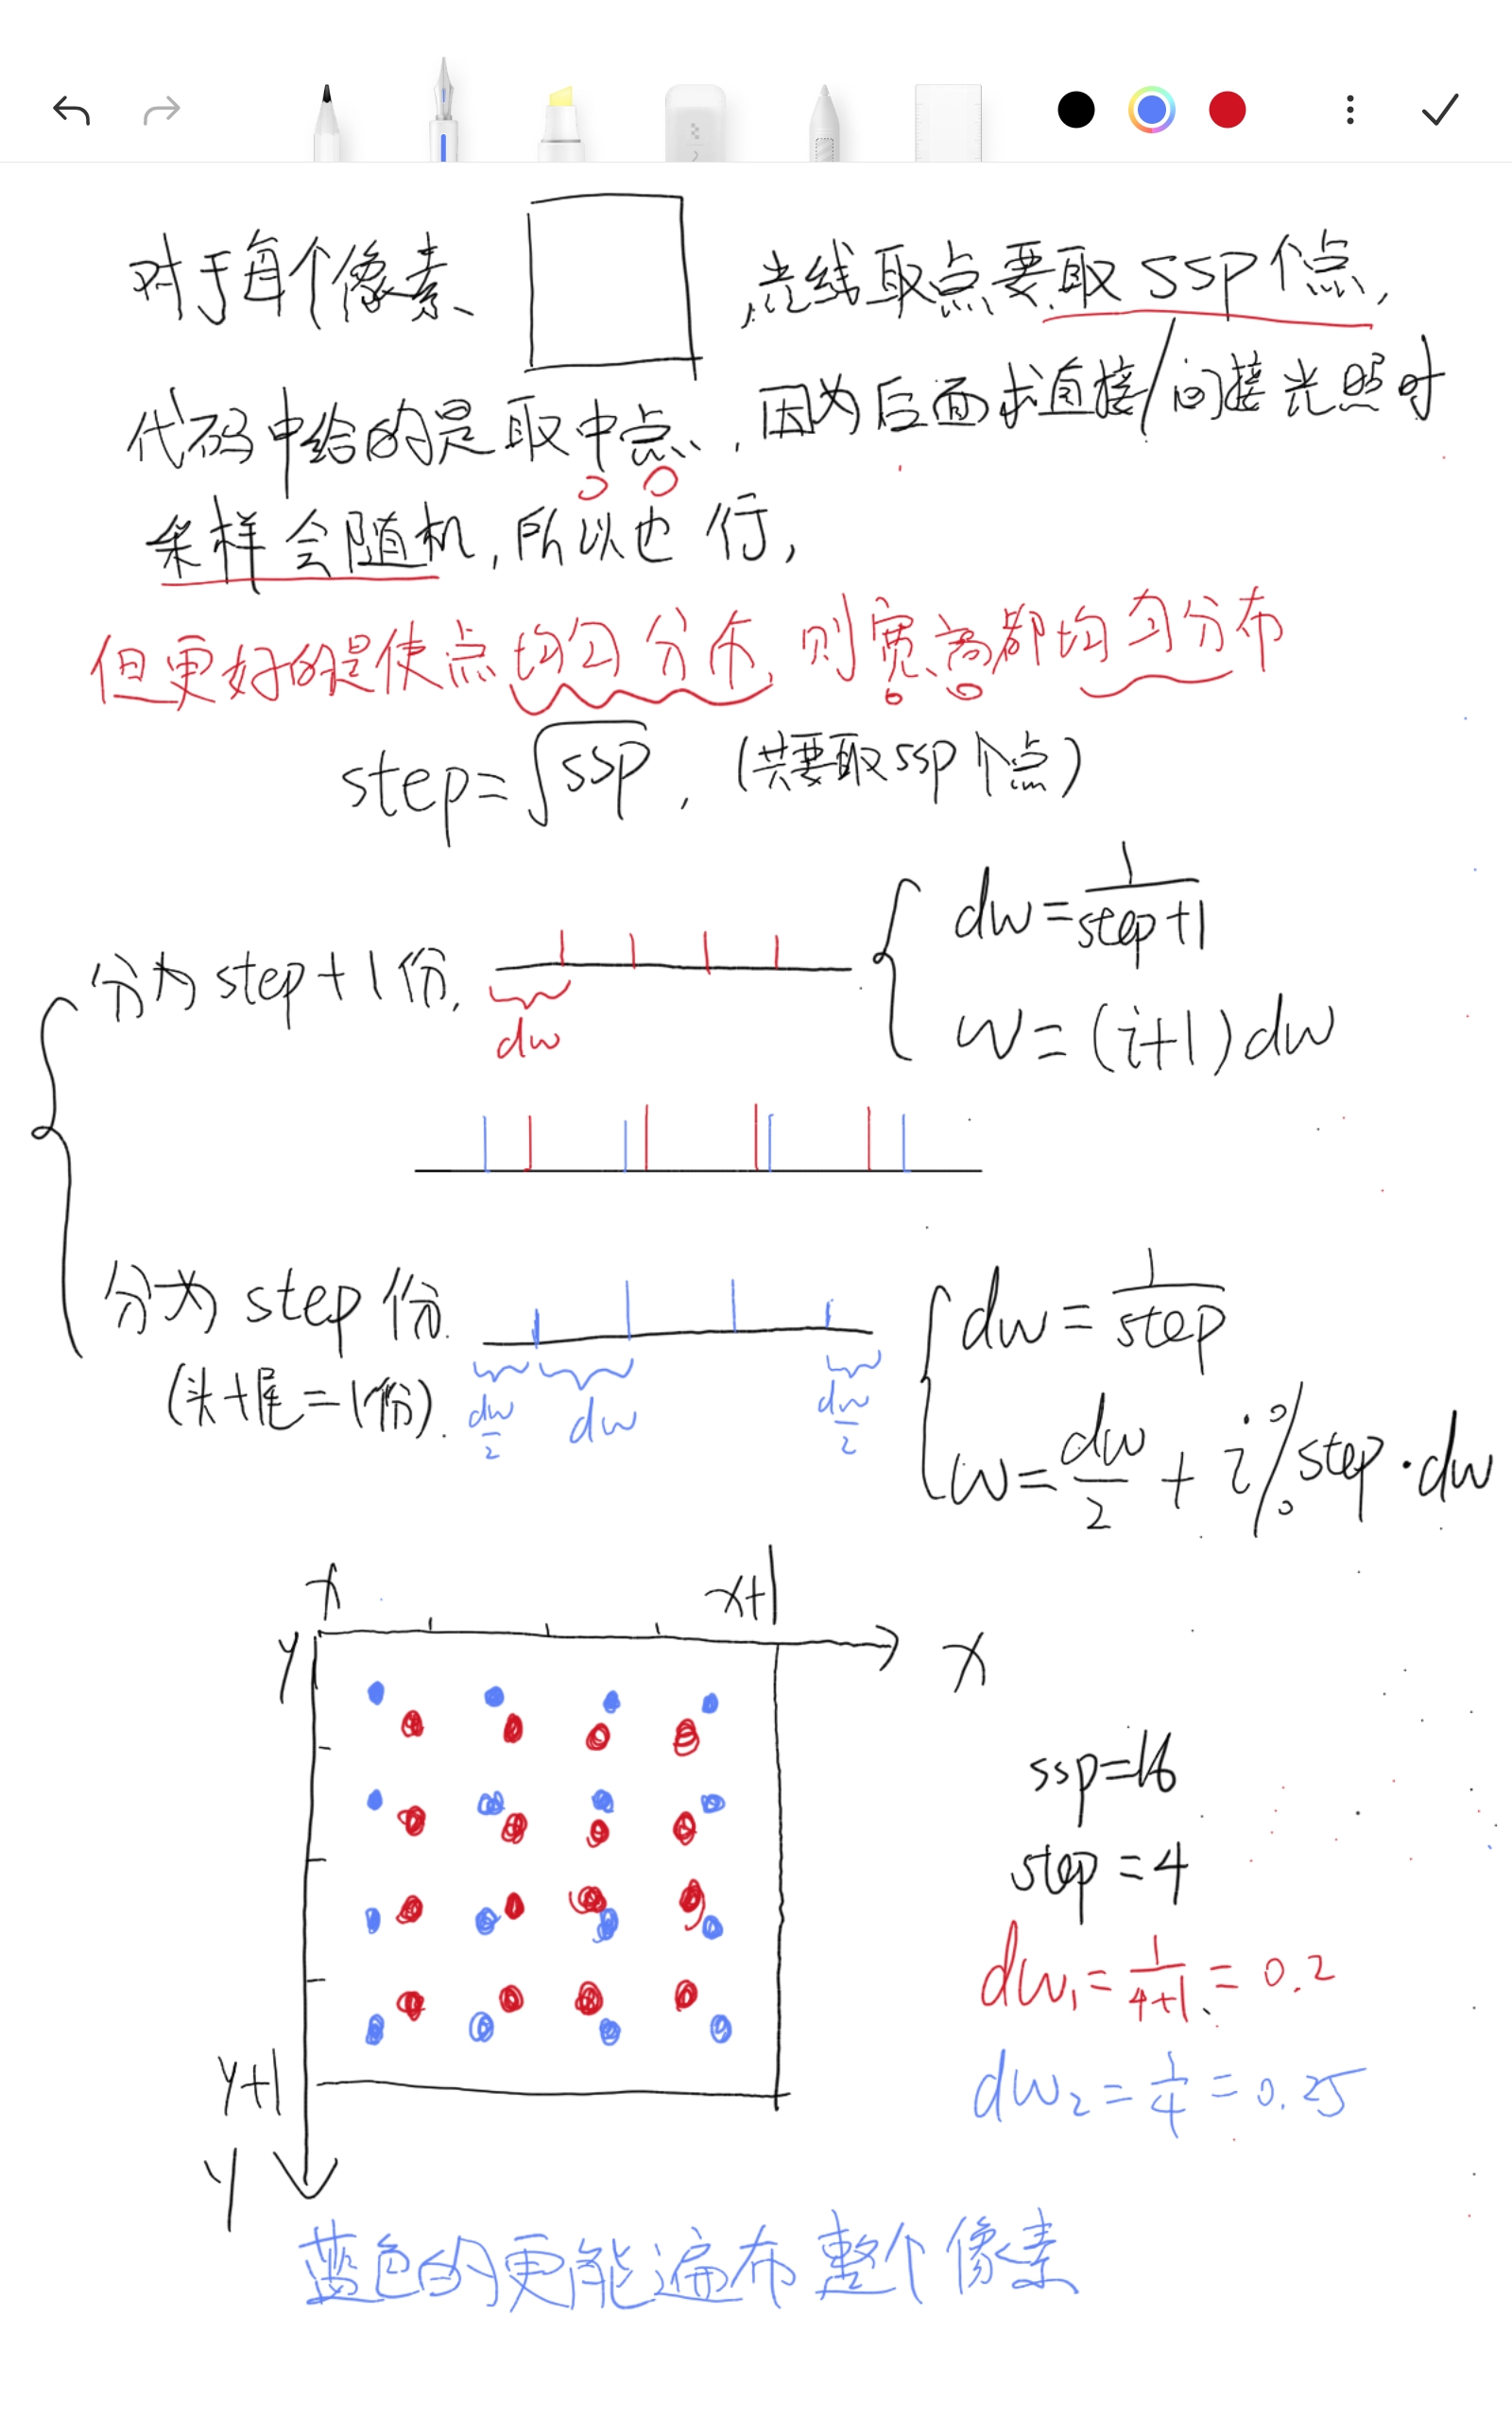 对于每个像素、 光线取点要取 ssp 个点,
代码中给的是取中点、,因为后面求直接/间接光照时
采样会随机,所以也行,
但更好的是使点均匀分布,则宽、高都均匀分布
step=√ssp , (共要取ssp个点)
分为 step+1份,
dw
dw=1/(step+1)
w=(i+1)dw
分为 step 份.
(头+尾=1份).
dw/2 dw dw/2
dw=1/step
w=dw/2 + i%step·dw
x x+1
y x
ssp=16
step=4
dw₁=1/(4+1)=0.2
dw₂=1/4=0.25
y+1
y
蓝色的更能遍布整个像素